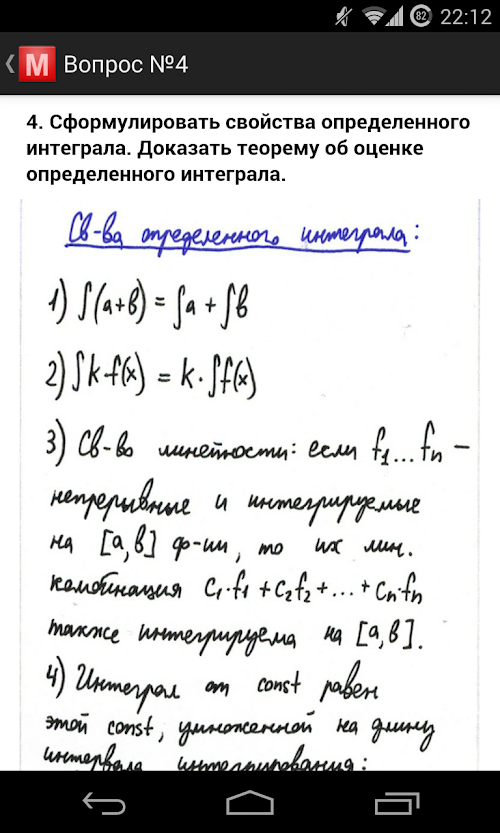 82 22:12
M Вопрос №4
4. Сформулировать свойства определенного
интеграла. Доказать теорему об оценке
определенного интеграла.
Св-ва определенного интеграла:
1) ∫(a+b) = ∫a + ∫b
2) ∫k·f(x) = k·∫f(x)
3) Св-во линейности: если f₁...fn –
непрерывные и интегрируемые
на [a,b] ф-ии, то их лин.
комбинация C₁·f₁ + C₂f₂ + ... + Cn·fn
также интегрируема на [a,b].
4) Интеграл от const равен
этой const, умноженной на длину
интервала интегрирования: